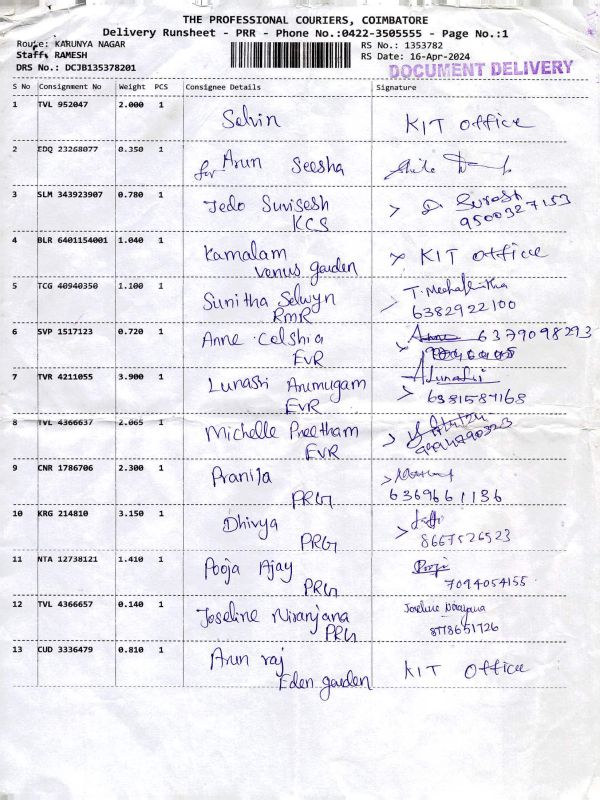 THE PROFESSIONAL COURIERS, COIMBATORE
Delivery Runsheet - PRR - Phone No.:0422-3505555 - Page No.:1
Route: KARUNYA NAGAR RS No.: 1353782
Staff: RAMESH RS Date: 16-Apr-2024
DRS No.: DCJB135378201 DOCUMENT DELIVERY
S No Consignment No Weight PCS Consignee Details Signature
1 TVL 952047 2.000 1 Selvin KIT Office
2 EDQ 23268077 0.350 1 for Arun Seesha
3 SLM 343923907 0.780 1 Jedo Suvisesh Suresh
KCS 9500327153
4 BLR 6401154001 1.040 1 Kamalam KIT office
Venus garden
5 TCG 40940350 1.100 1 Sunitha Selwyn
RMR 6382922100
6 SVP 1517123 0.720 1 Anne Celshia Anne 6379098293
EVR
7 TVR 4211055 3.900 1 Lunasri Arumugam Lunasri
EVR 6381587168
8 TVL 4366637 2.065 1 Michelle Preetham
EVR
9 CNR 1786706 2.300 1 Pranija
PRG 6369661136
10 KRG 214810 3.150 1 Dhivya
PRG 8667526523
11 NTA 12738121 1.410 1 Pooja Ajay
PRG 7094054155
12 TVL 4366657 0.140 1 Joseline Niranjana Joseline Niranjana
PRG 8778651726
13 CUD 3336479 0.810 1 Arun raj KIT Office
Eden garden